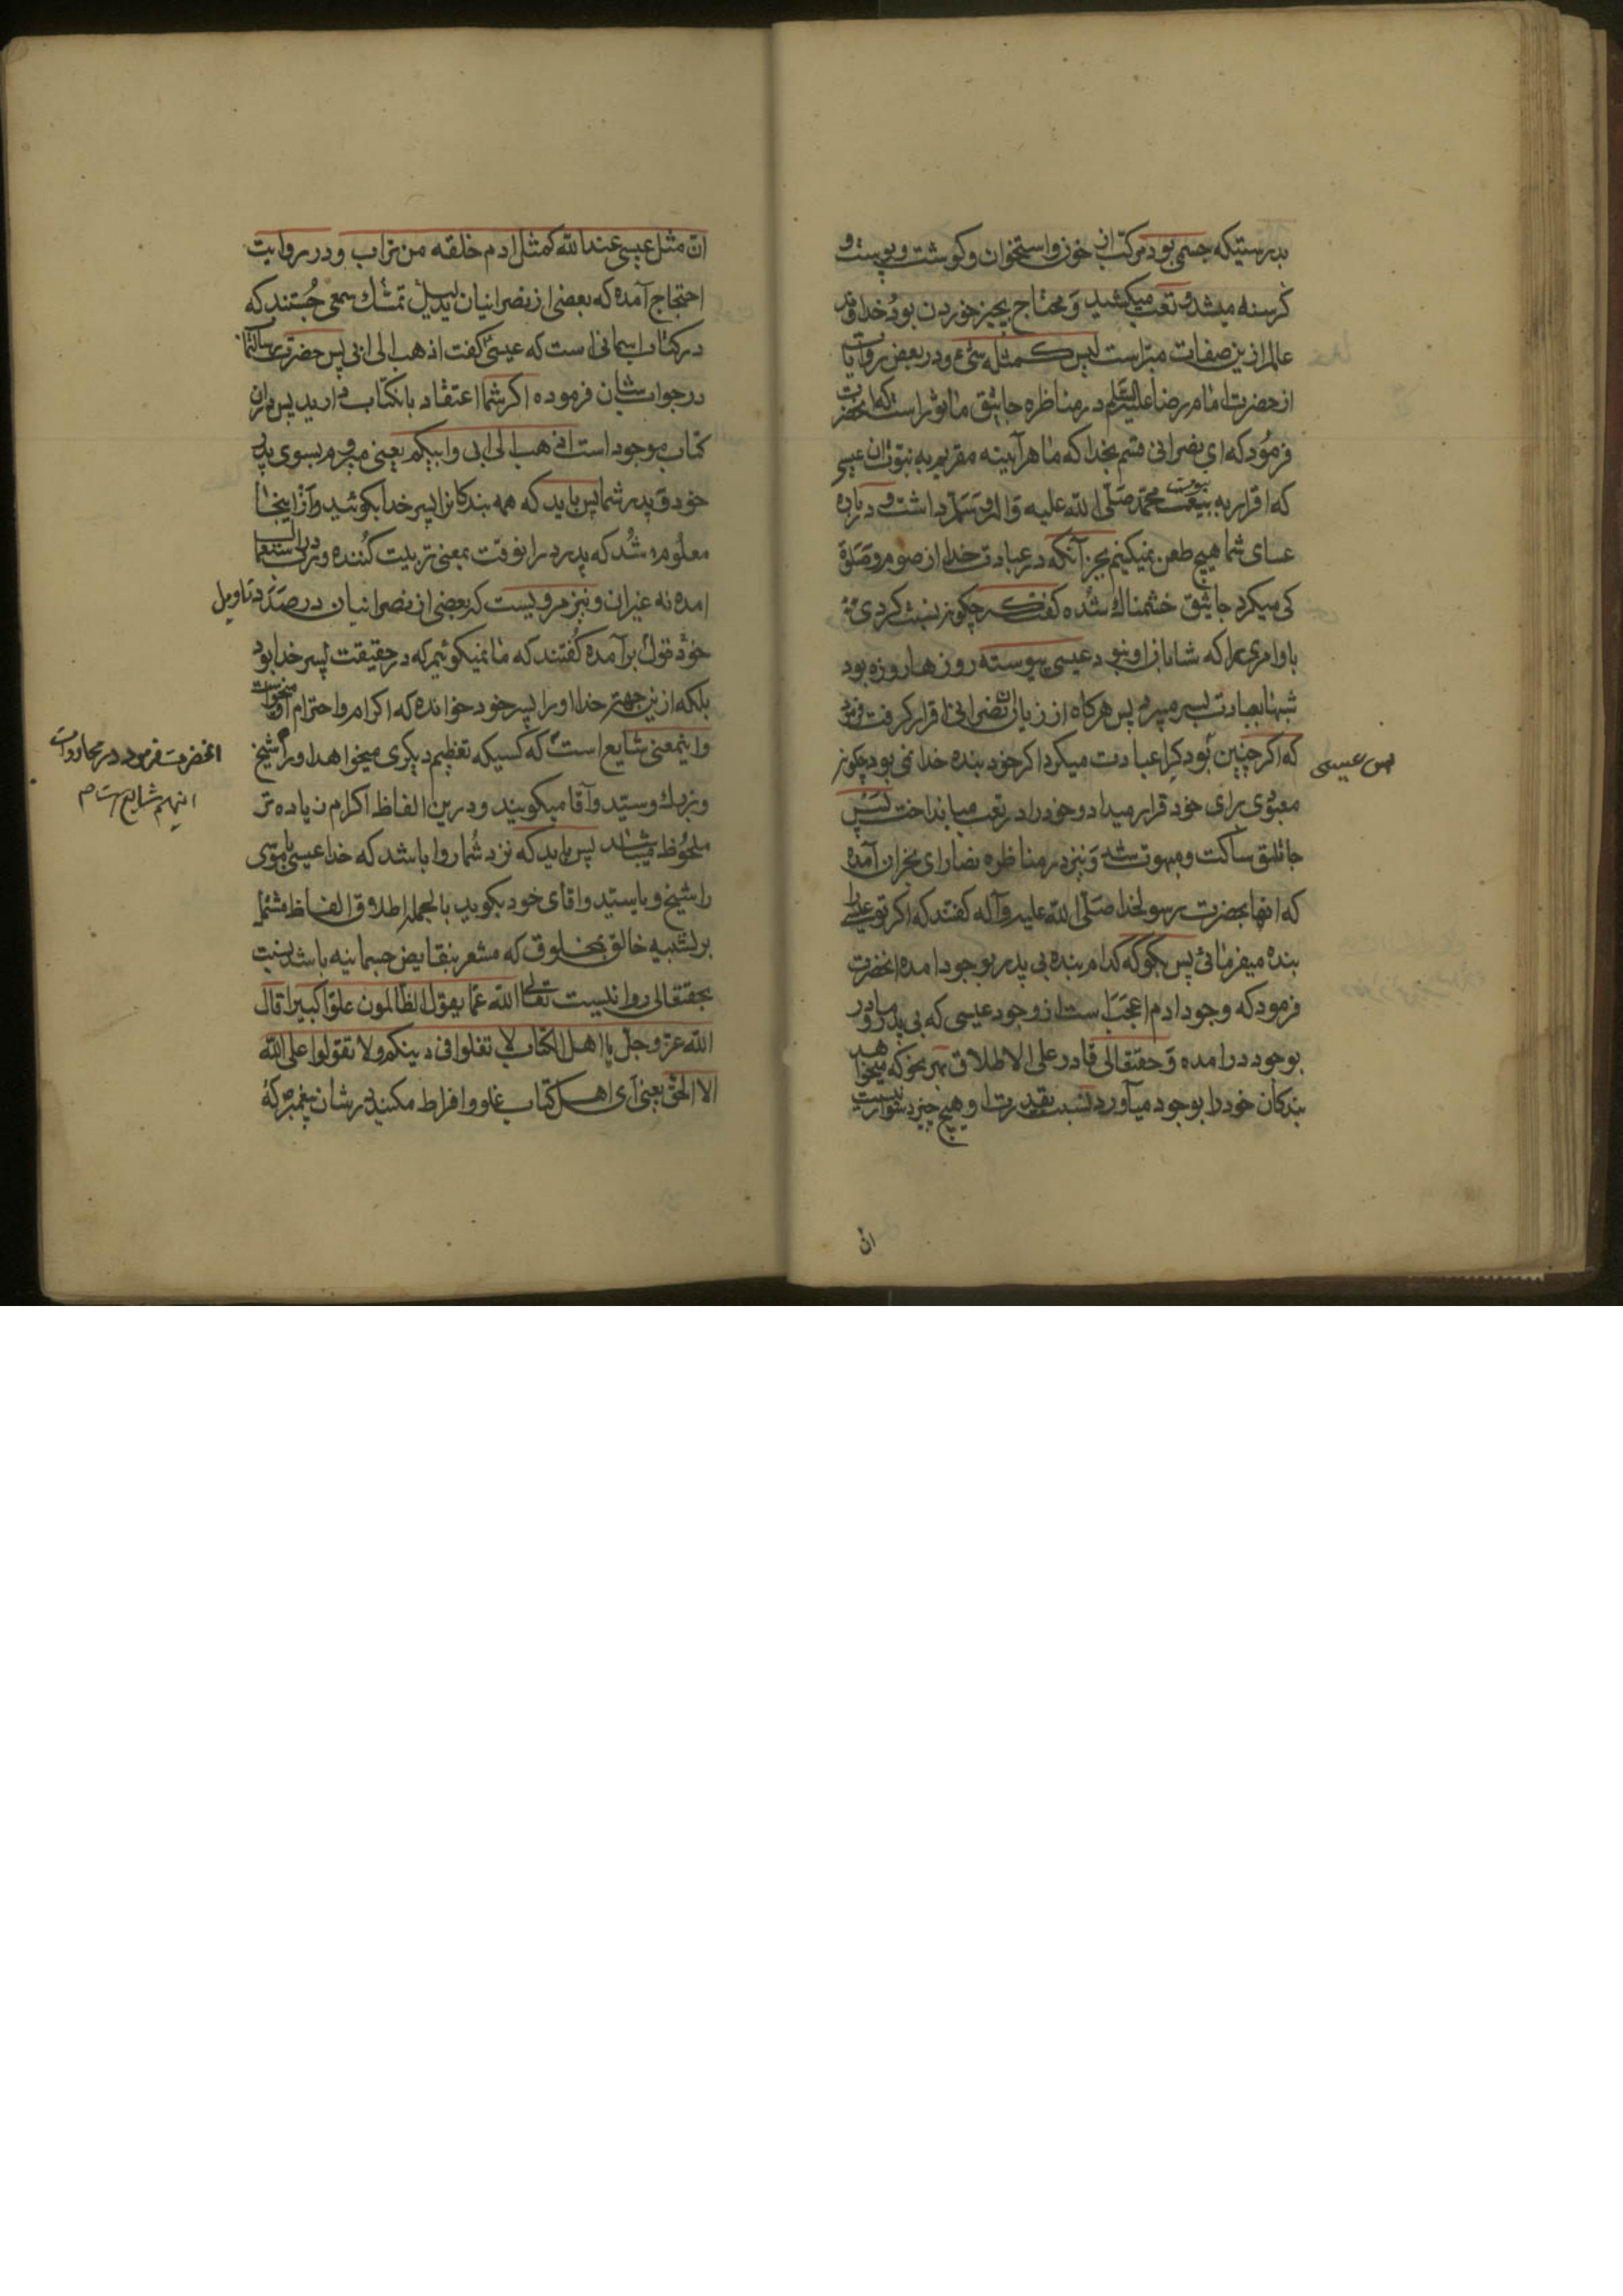 بدرستیکه جسمی بود مرکب از خون و استخوان و گوشت و پوست و
گرسنه میشد و تعب میکشید و محتاج بچیز خوردن بود و خداوند
عالم ازین صفات مبراست لیس کمثله شیء و در بعض روایات
از حضرت امام رضا علیه السلم در مناظره جاثلیق ماثور است که آنحضرت
فرمود که ای نصرانی قسم بخدا که ما هرآینه مقریم به نبوت آن عیسی
که اقرار به نبوت محمد صلی الله علیه و اله و سلم داشت و درباره
عیسای شما هیچ طعن نمیکنیم بجز آنکه در عبادت خدا از صوم و صلوة
کمی میکرد جاثلیق خشمناک شده گفت که چگونه نسبت کردی
باو امری را که شایان او نبود عیسی پیوسته روزها روزه بود
شبها بعبادت بسر میبرد پس هرگاه از زبان نصرانی اقرار گرفت فرمود
که اگر چنین بود کرا عبادت میکرد اگر خود بنده خدا نمی بود چگونه
پس عیسی
معبودی برای خود قرار میداد و خود را در تعب میانداخت پس
جاثلیق ساکت و مبهوت شد و نیز در مناظره نصارای نجران آمده
که آنها بحضرت رسولخدا صلی الله علیه و آله گفتند که اگر تو عیسی را
بنده میفرمائی پس بگو که کدام بنده بی پدر بوجود امده انحضرت
فرمود که وجود ادم اعجب است از وجود عیسی که بی پدر و مادر
بوجود درامده و حقتعالی قادر علی الاطلاق بهر نحو که میخواهد
بندگان خود را بوجود میآورد نسبت بقدرت او هیچ چیز دشوار نیست
ان
ان مثل عیسی عند الله کمثل ادم خلقه من تراب و در روایت
احتجاج آمده که بعضی از نصرانیان بدلیل تمسک سمعی جستند که
در کتاب اسمانی است که عیسی گفت اذهب الی ابی پس حضرت رسالتمآب
در جواب شان فرموده اگر شما اعتقاد بانکتاب دارید پس در ان
کتاب موجود است اذهب الی ابی و ابیکم یعنی میروم بسوی پدر
خود و پدر شما پس باید که همه بندگانرا پسر خدا بگوئید و از اینجا
معلوم شد که پدر در انوقت بمعنی تربیت کننده و بزرگ در استعمال
امده نه غیر ان و نیز مرویست که بعضی از نصرانیان در صدد تاویل
خود قول برآمده گفتند که ما نمیگوئیم که در حقیقت پسر خدا بود
بلکه ازین جهت خدا او را پسر خود خوانده که اکرام و احترام او میخواست
انحضرت فرمود در محاورات
انهم شایع است م
و اینمعنی شایع است که کسیکه تعظیم دیگری میخواهد او را شیخ
و بزرگ و سید و آقا میگویند و درین الفاظ اکرام زیاده تر
ملحوظ میباشد پس باید که نزد شما روا باشد که خدا عیسی یا موسی
را شیخ و یا سید و اقای خود بگوید بالجمله اطلاق الفاظ مشتمل
بر تشبیه خالق بمخلوق که مشعر بنقایص جسمانیه باشد نسبت
بحقتعالی روا نیست تعالی الله عما یقول الظالمون علوا کبیرا قال
الله عز و جل یا اهل الکتاب لا تغلوا فی دینکم و لا تقولوا علی الله
الا الحق یعنی ای اهل کتاب غلو و افراط مکنید در شان پیغمبر که